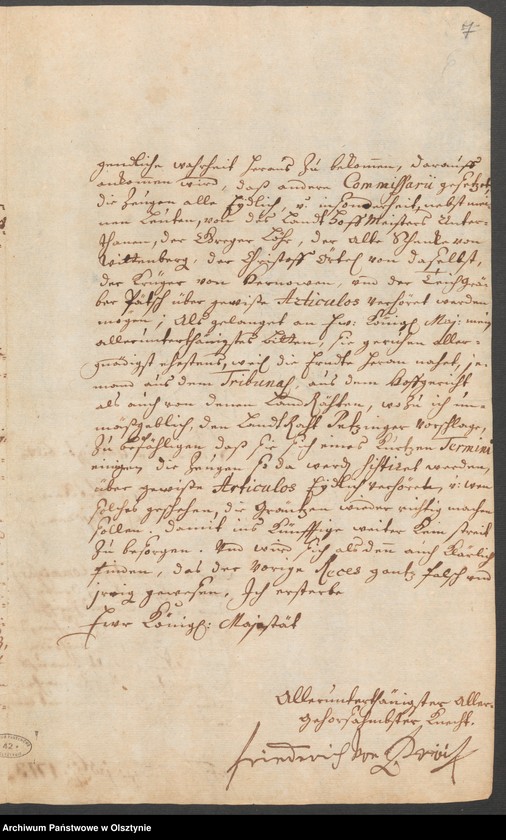 7
gendliche wahrheit heraus zu bekommen, darauff
ankommen wird, daß andere Commissarii gesetzet,
die Zeugen alle Eydlich, u. in sonderheit, nebst mei-
nen Leuten, von des Landt Hoffmeisters Unter-
thanen, der Greger Löhr, der alte Schencke von
Wittenberg, der Christoff von daselbst,
der Krüger von Pernowen, und der Teichgrä-
ber Pätsch über gewiße Articulos verhöret werden
mögen, Als gelanget an Ew: Königl Maj: mein
allerunterthänigstes bitten, sie geruhen Aller-
gnädigst ehestens, weil die Erndte heran nahet, je-
mand aus dem Tribunal, aus dem Hoffgericht
als auch von denen Land Räthen, wozu ich un-
maßgeblich, den Landt Raht vorschlage,
zu befehligen daß sie sich eines kurtzen Termini
einigen die Zeugen so da werden sistiret werden,
über gewiße Articulos Eydlich verhören, u: wen
solches geschehen, die Gräntzen wieder richtig machen
sollen, damit ins künfftige weiter kein streit
zu besorgen. Und wird sich alsdenn auch klärlich
finden, daß der vorige Reces gantz falsch und
irrig gewesen, Ich ersterbe
Ewr Königl: Majestät
Allerunterthänigster Aller-
gehorsahmbster Knecht.
Friederich von
42
Archiwum Państwowe w Olsztynie